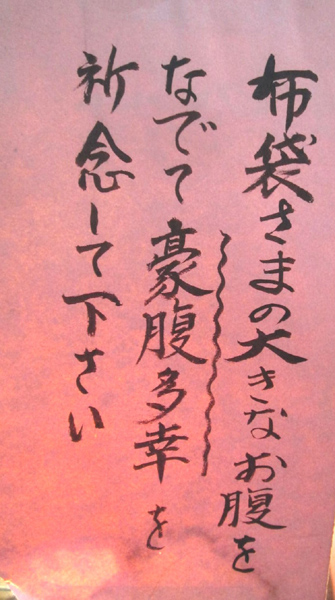 布袋さまの大きなお腹を
なでて豪腹多幸を
祈念して下さい